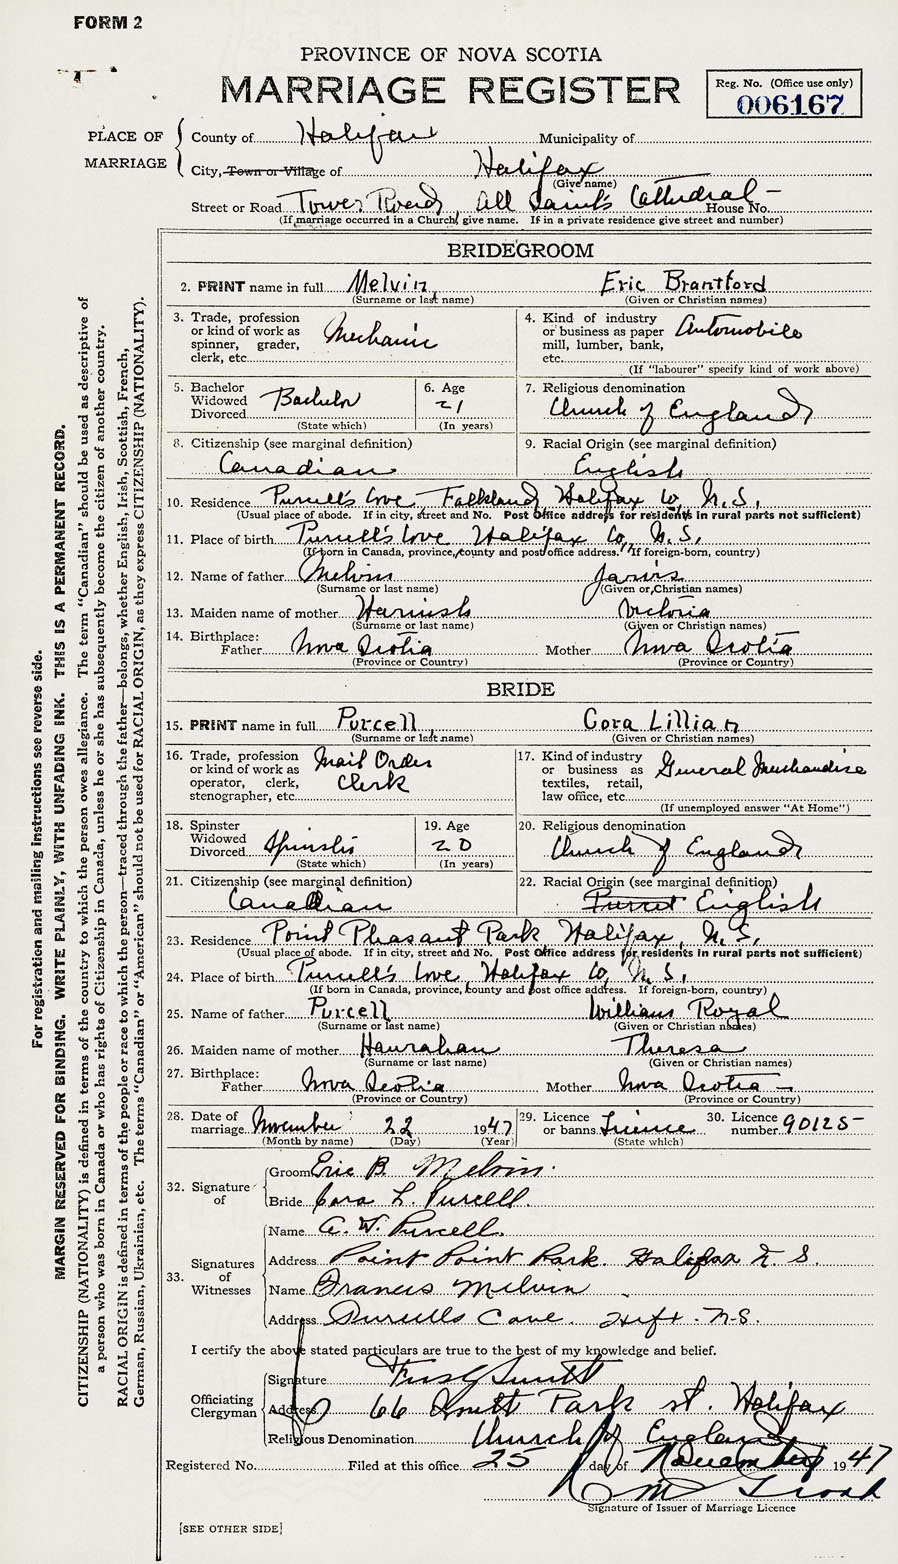 FORM 2
PROVINCE OF NOVA SCOTIA
MARRIAGE REGISTER
Reg. No. (Office use only)
006167
PLACE OF MARRIAGE
County of Halifax Municipality of
City, Town or Village of Halifax
(Give name)
Street or Road Tower Road, All Saint's Cathedral – House No.
(If marriage occurred in a Church, give name. If in a private residence give street and number)
BRIDEGROOM
2. PRINT name in full Melvin, Eric Brantford
(Surname or last name) (Given or Christian names)
3. Trade, profession or kind of work as spinner, grader, clerk, etc. Mechanic
4. Kind of industry or business as paper mill, lumber, bank, etc. Automobile
(If "labourer" specify kind of work above)
5. Bachelor Widowed Divorced Bachelor
(State which)
6. Age 21
(In years)
7. Religious denomination
Church of England
8. Citizenship (see marginal definition)
Canadian
9. Racial Origin (see marginal definition)
English
10. Residence Purcell's Cove, Falkland, Halifax Co, N.S.
(Usual place of abode. If in city, street and No. Post Office address for residents in rural parts not sufficient)
11. Place of birth Purcell's Cove Halifax Co, N.S.
(If born in Canada, province, county and post office address. If foreign-born, country)
12. Name of father Melvin Jarvis
(Surname or last name) (Given or Christian names)
13. Maiden name of mother Harnish Victoria
(Surname or last name) (Given or Christian names)
14. Birthplace:
Father Nova Scotia Mother Nova Scotia
(Province or Country) (Province or Country)
BRIDE
15. PRINT name in full Purcell, Cora Lillian
(Surname or last name) (Given or Christian names)
16. Trade, profession or kind of work as operator, clerk, stenographer, etc. Mail Order Clerk
17. Kind of industry or business as textiles, retail, law office, etc. General Merchandise
(If unemployed answer "At Home")
18. Spinster Widowed Divorced Spinster
(State which)
19. Age 20
(In years)
20. Religious denomination
Church of England
21. Citizenship (see marginal definition)
Canadian
22. Racial Origin (see marginal definition)
English
23. Residence Point Pleasant Park Halifax, N.S.
(Usual place of abode. If in city, street and No. Post Office address for residents in rural parts not sufficient)
24. Place of birth Purcell's Cove, Halifax Co, N.S.
(If born in Canada, province, county and post office address. If foreign-born, country)
25. Name of father Purcell William Royal
(Surname or last name) (Given or Christian names)
26. Maiden name of mother Hanrahan Theresa
(Surname or last name) (Given or Christian names)
27. Birthplace:
Father Nova Scotia Mother Nova Scotia –
(Province or Country) (Province or Country)
28. Date of marriage November 22 1947
(Month by name) (Day) (Year)
29. Licence or banns Licence
(State which)
30. Licence number 90125
32. Signature of
Groom Eric B. Melvin.
Bride Cora L. Purcell.
33. Signatures of Witnesses
Name A. W. Purcell.
Address Point Point Park. Halifax N. S.
Name Francis Melvin
Address Purcells Cove. Hlfx. N.S.
I certify the above stated particulars are true to the best of my knowledge and belief.
Officiating Clergyman
Signature
Address 66 South Park st. Halifax
Religious Denomination Church of England
Registered No. Filed at this office 25 day of November 1947
Signature of Issuer of Marriage Licence
[SEE OTHER SIDE]
For registration and mailing instructions see reverse side.
MARGIN RESERVED FOR BINDING. WRITE PLAINLY, WITH UNFADING INK. THIS IS A PERMANENT RECORD.
CITIZENSHIP (NATIONALITY) is defined in terms of the country to which the person owes allegiance. The term "Canadian" should be used as descriptive of
a person who was born in Canada or who has rights of Citizenship in Canada, unless he or she has subsequently become the citizen of another country.
RACIAL ORIGIN is defined in terms of the people or race to which the person—traced through the father—belongs, whether English, Irish, Scottish, French,
German, Russian, Ukrainian, etc. The terms "Canadian" or "American" should not be used for RACIAL ORIGIN, as they express CITIZENSHIP (NATIONALITY).